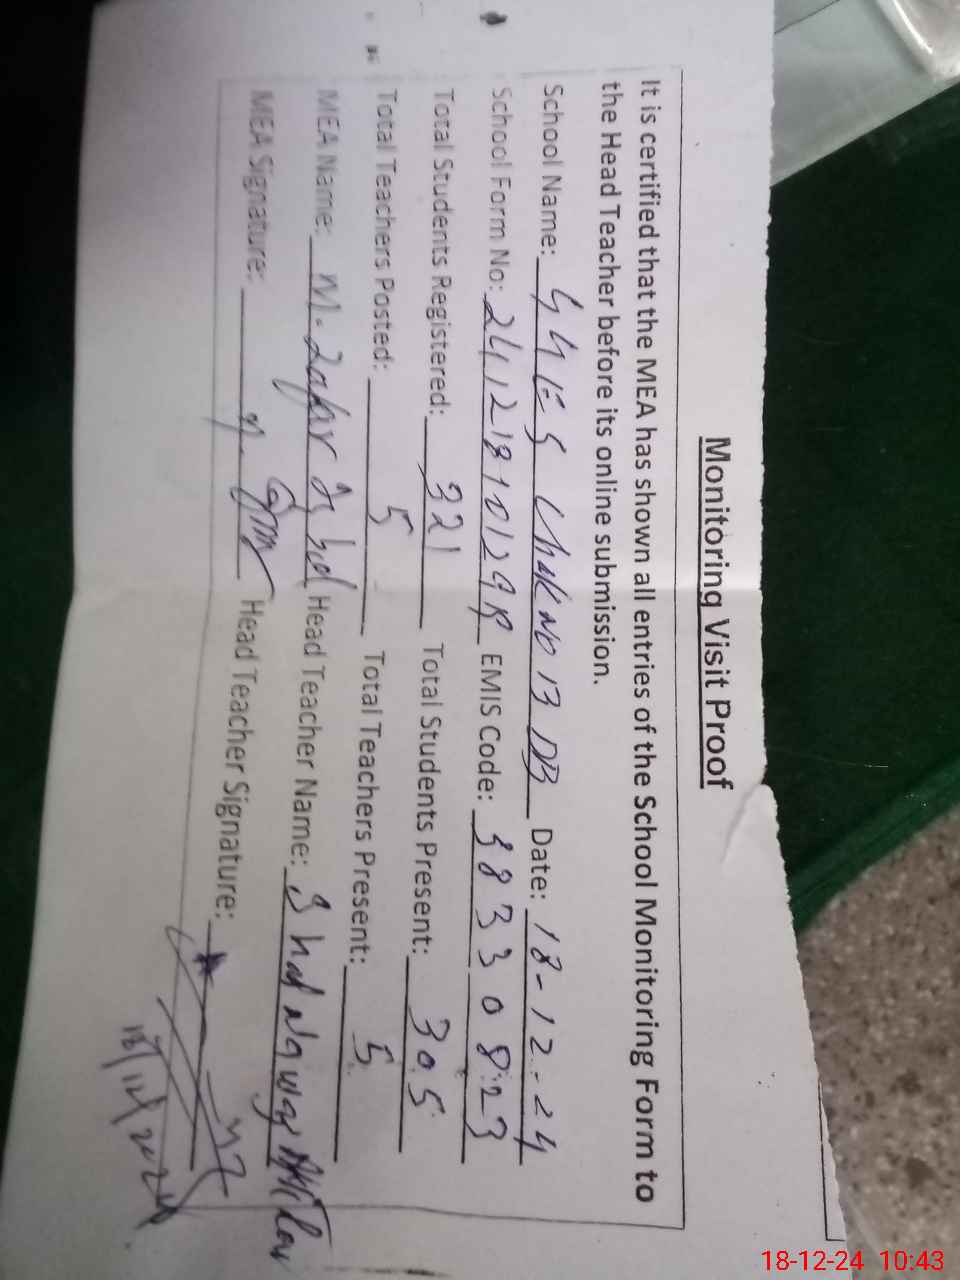 Monitoring Visit Proof
It is certified that the MEA has shown all entries of the School Monitoring Form to
the Head Teacher before its online submission.
School Name: GGES Chak No 13 DB Date: 18-12-24
School Form No: EMIS Code: 38330823
Total Students Registered: 321 Total Students Present: 305
Total Teachers Posted: 5 Total Teachers Present: 5
MEA Name: M. Zafar Iqbal Head Teacher Name:
MEA Signature: Head Teacher Signature:
18/12/2024
18-12-24 10:43